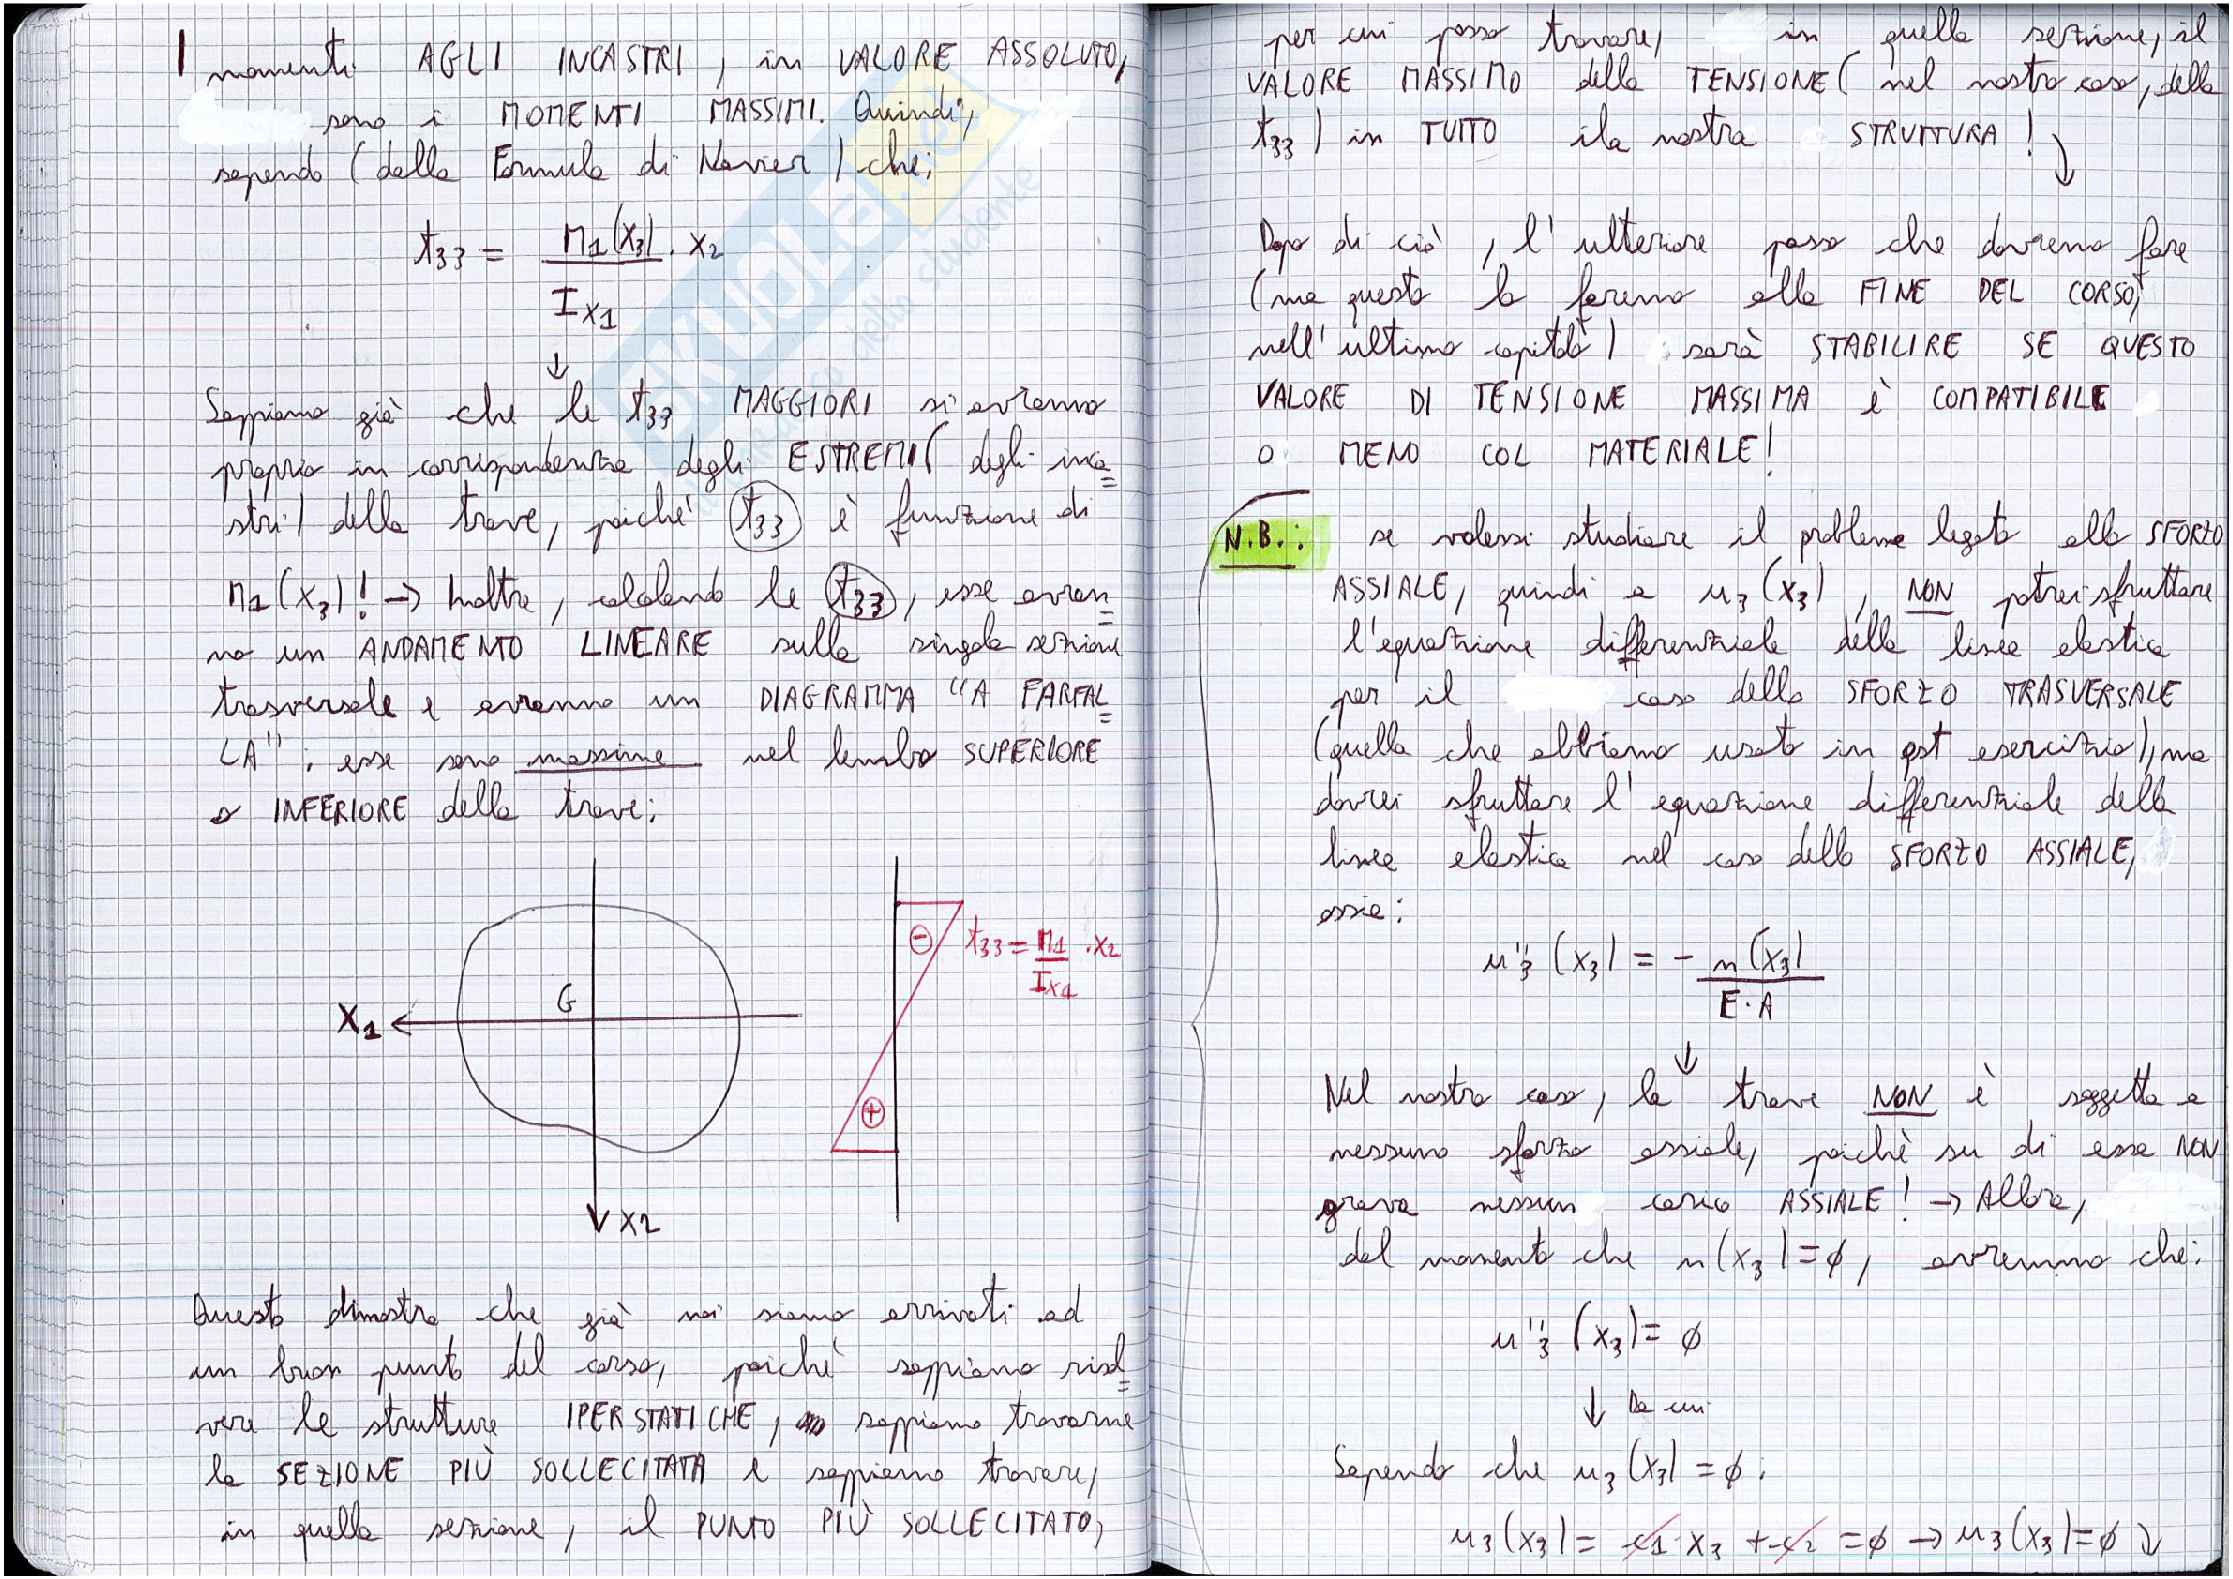 I momenti AGLI INCASTRI, in VALORE ASSOLUTO,
sono i MOMENTI MASSIMI. Quindi,
sapendo (dalla Formula di Navier) che:
t33 = M1(x3)/Ix1 · x2
↓
Sappiamo già che le t33 MAGGIORI si avranno
proprio in corrispondenza degli ESTREMI (degli inca=
stri) della trave, poiché t33 è funzione di
M1(x3)! → Inoltre, calcolando le t33, esse avran=
no un ANDAMENTO LINEARE sulla singola sezione
trasversale e avranno un DIAGRAMMA "A FARFAL=
LA"; esse sono massime nel lembo SUPERIORE
o INFERIORE della trave:
G
X1
x2
⊖
⊕
t33 = M1/Ix1 · x2
Questo dimostra che già noi siamo arrivati ad
un buon punto del corso, poiché sappiamo risol=
vere le strutture IPERSTATICHE, sappiamo trovarne
la SEZIONE PIÙ SOLLECITATA e sappiamo trovare,
in quella sezione, il PUNTO PIÙ SOLLECITATO,
per cui posso trovare, in quella sezione, il
VALORE MASSIMO della TENSIONE (nel nostro caso, della
t33) in TUTTO ila nostra STRUTTURA! ↓
Dopo di ciò, l'ulteriore passo che dovremo fare
(ma questo lo faremo alla FINE DEL CORSO,
nell'ultimo capitolo) sarà STABILIRE SE QUESTO
VALORE DI TENSIONE MASSIMA è COMPATIBILE
O MENO COL MATERIALE!
N.B.: se volessi studiare il problema legato allo SFORZO
ASSIALE, quindi a u3(x3), NON potrei sfruttare
l'equazione differenziale della linea elastica
per il caso dello SFORZO TRASVERSALE
(quella che abbiamo usato in qst esercizio), ma
dovrei sfruttare l'equazione differenziale della
linea elastica nel caso dello SFORZO ASSIALE,
ossia:
u''3(x3) = - n(x3)/E·A
↓
Nel nostro caso, la trave NON è soggetta a
nessuno sforzo assiale, poichè su di essa NON
grava nessun carico ASSIALE! → Allora,
dal momento che n(x3)=ϕ, avremmo che:
u''3(x3)=ϕ
↓ Da cui
Sapendo che u3(x3)=ϕ:
u3(x3)= c1·x3 + c2 =ϕ → u3(x3)=ϕ ↓